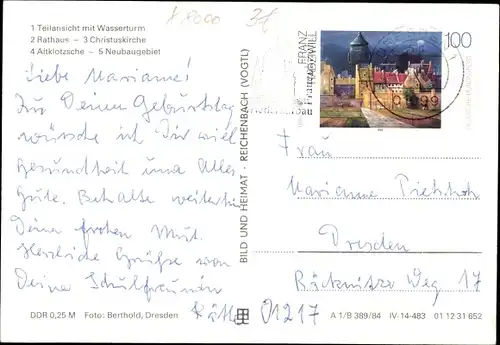 1 Teilansicht mit Wasserturm
2 Rathaus – 3 Christuskirche
4 Altklotzsche – 5 Neubaugebiet
Liebe Marianne!
Zu Deinem Geburtstag
wünsche ich Dir viel
Gesundheit und Alles
Gute. Behalte weiterhin
Deine frohen Mut.
Herzliche Grüße von
Deine Schulfreundin
Käthe
DDR 0,25 M Foto: Berthold, Dresden
BILD UND HEIMAT · REICHENBACH (VOGTL)
FRANZ
RADZIWILL
100
Frau
Marianne
Dresden
Räcknitzer Weg 17
01217
A 1/B 389/84 IV-14-483 01 12 31 652